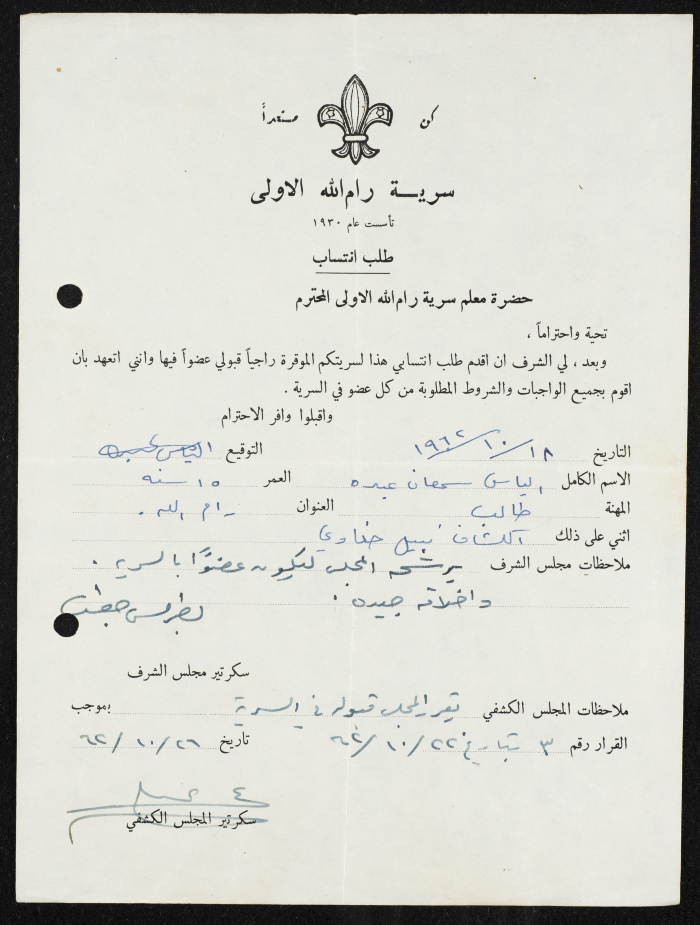 كن مستعداً
سرية رام الله الاولى
تأسست عام ١٩٣٠
طلب انتساب
حضرة معلم سرية رام الله الاولى المحترم
تحية واحتراماً ،
وبعد ، لي الشرف ان اقدم طلب انتسابي هذا لسريتكم الموقرة راجياً قبولي عضواً فيها وانني اتعهد بان
اقوم بجميع الواجبات والشروط المطلوبة من كل عضو في السرية .
واقبلوا وافر الاحترام
التاريخ ١٨/١٠/١٩٦٢ التوقيع الياس
الاسم الكامل الياس سمعان عبده العمر ١٥ سنه
المهنة طالب العنوان رام الله .
اثني على ذلك الكشاف نبيل حفاوي
ملاحظات مجلس الشرف يرشحه المجلس ليكون عضوًا بالسريه .
واخلاقه جيده . بطرس
سكرتير مجلس الشرف
ملاحظات المجلس الكشفي يقرر المجلس قبوله في السرية بموجب
القرار رقم ٣ بتاريخ ٢٢/١٠/٦٢ تاريخ ٢٦/١٠/٦٢
سكرتير المجلس الكشفي